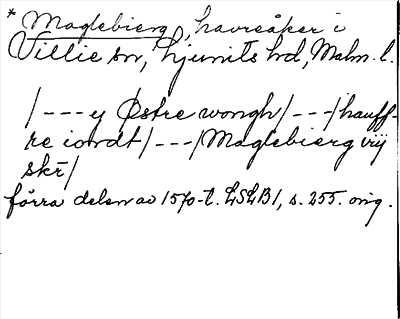 * Maglebierg, havreåker i
Villie sn, Ljunits hd, Malm. l.
/---y Østre wongh/---/hauff-
re iordt/---/Maglebierg vij
skr̄/
förra delen av 1570-t. LSLB1, s. 255. orig.